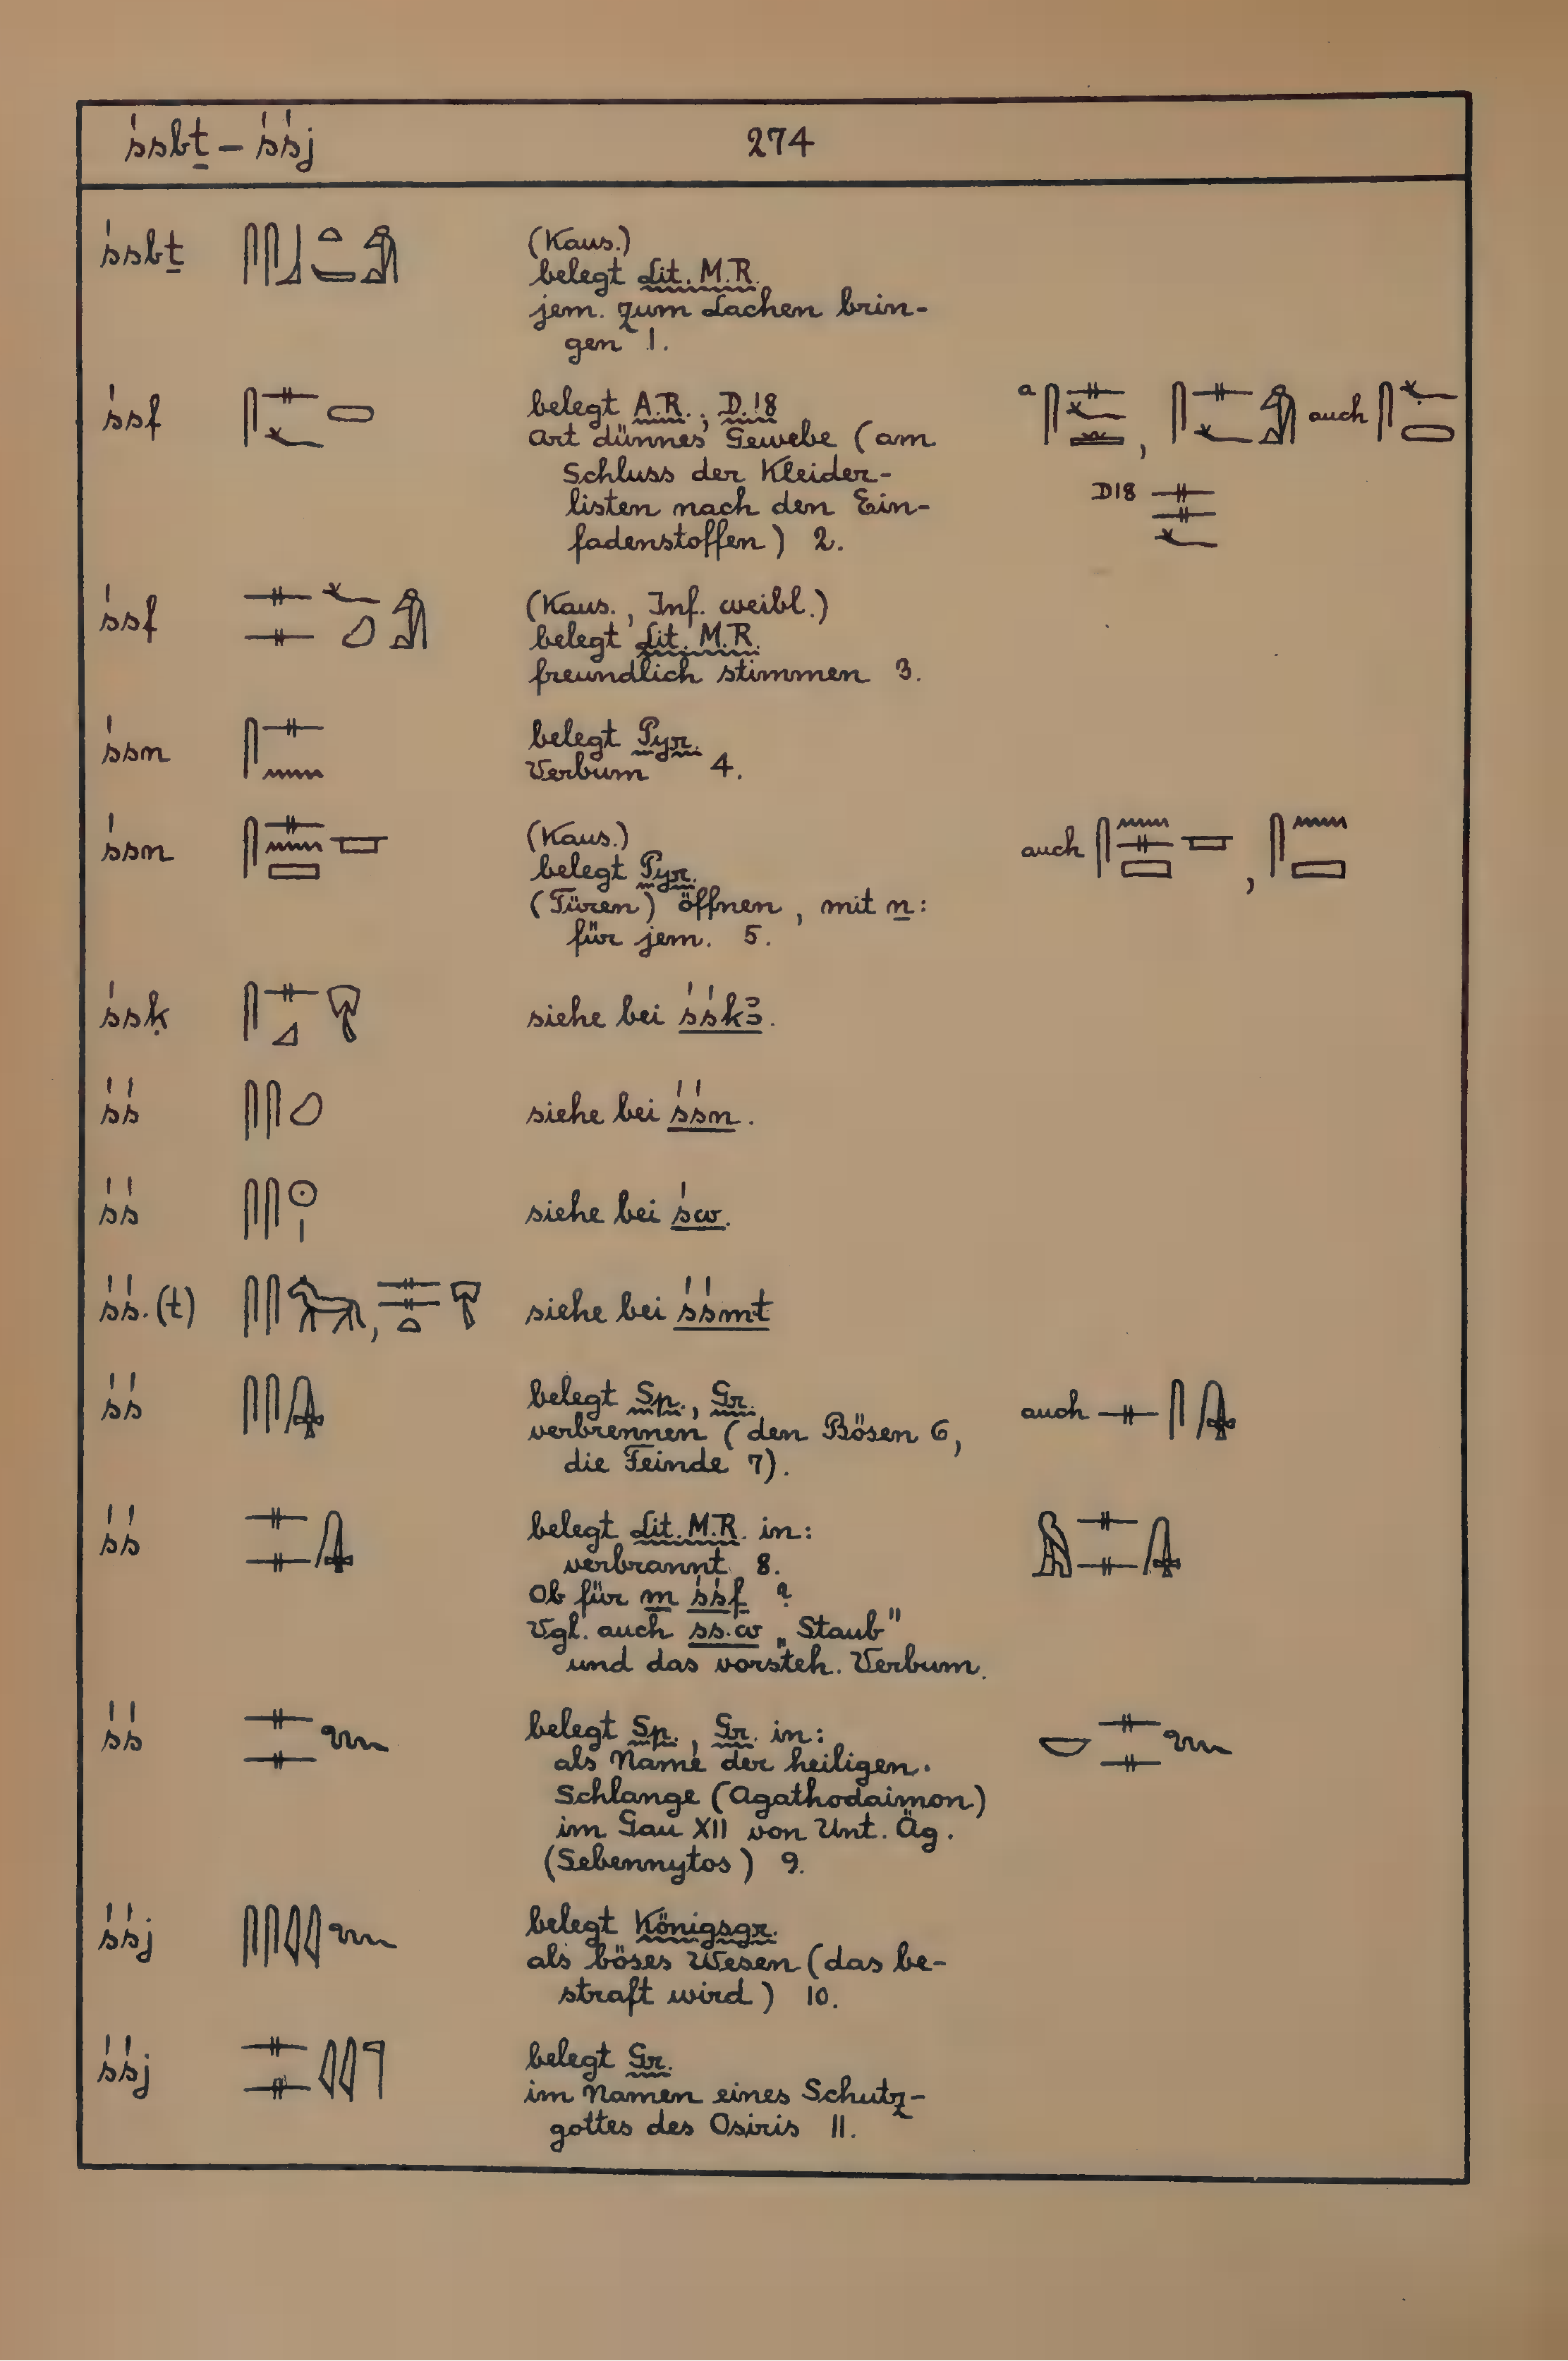 śsbṯ – śśj 274
śsbṯ (Kaus.)
belegt Lit. M.R.
jem. zum Lachen brin-
gen 1.
śsf belegt A.R., D.18 a , auch
Art dünnes Gewebe (am
Schluss der Kleider-
listen nach den Ein- D18
fadenstoffen) 2.
śsf (Kaus., Inf. weibl.)
belegt Lit. M.R.
freundlich stimmen 3.
śsn belegt Pyr.
Verbum 4.
śsn (Kaus.) auch ,
belegt Pyr.
(Türen) öffnen, mit n:
für jem. 5.
śsḳ siehe bei śśkꜣ.
śś siehe bei śśn.
śś siehe bei św.
śś.(t) , siehe bei śśmt
śś belegt Sp., Gr. auch
verbrennen (den Bösen 6,
die Feinde 7).
śś belegt Lit. M.R. in:
verbrannt 8.
Ob für m śśf ?
Vgl. auch ss.w „Staub"
und das vorsteh. Verbum.
śś belegt Sp., Gr. in:
als Name der heiligen
Schlange (Agathodaimon)
im Gau XII von Unt. Äg.
(Sebennytos) 9.
śśj belegt Königsgr.
als böses Wesen (das be-
straft wird) 10.
śśj belegt Gr.
im Namen eines Schutz-
gottes des Osiris 11.